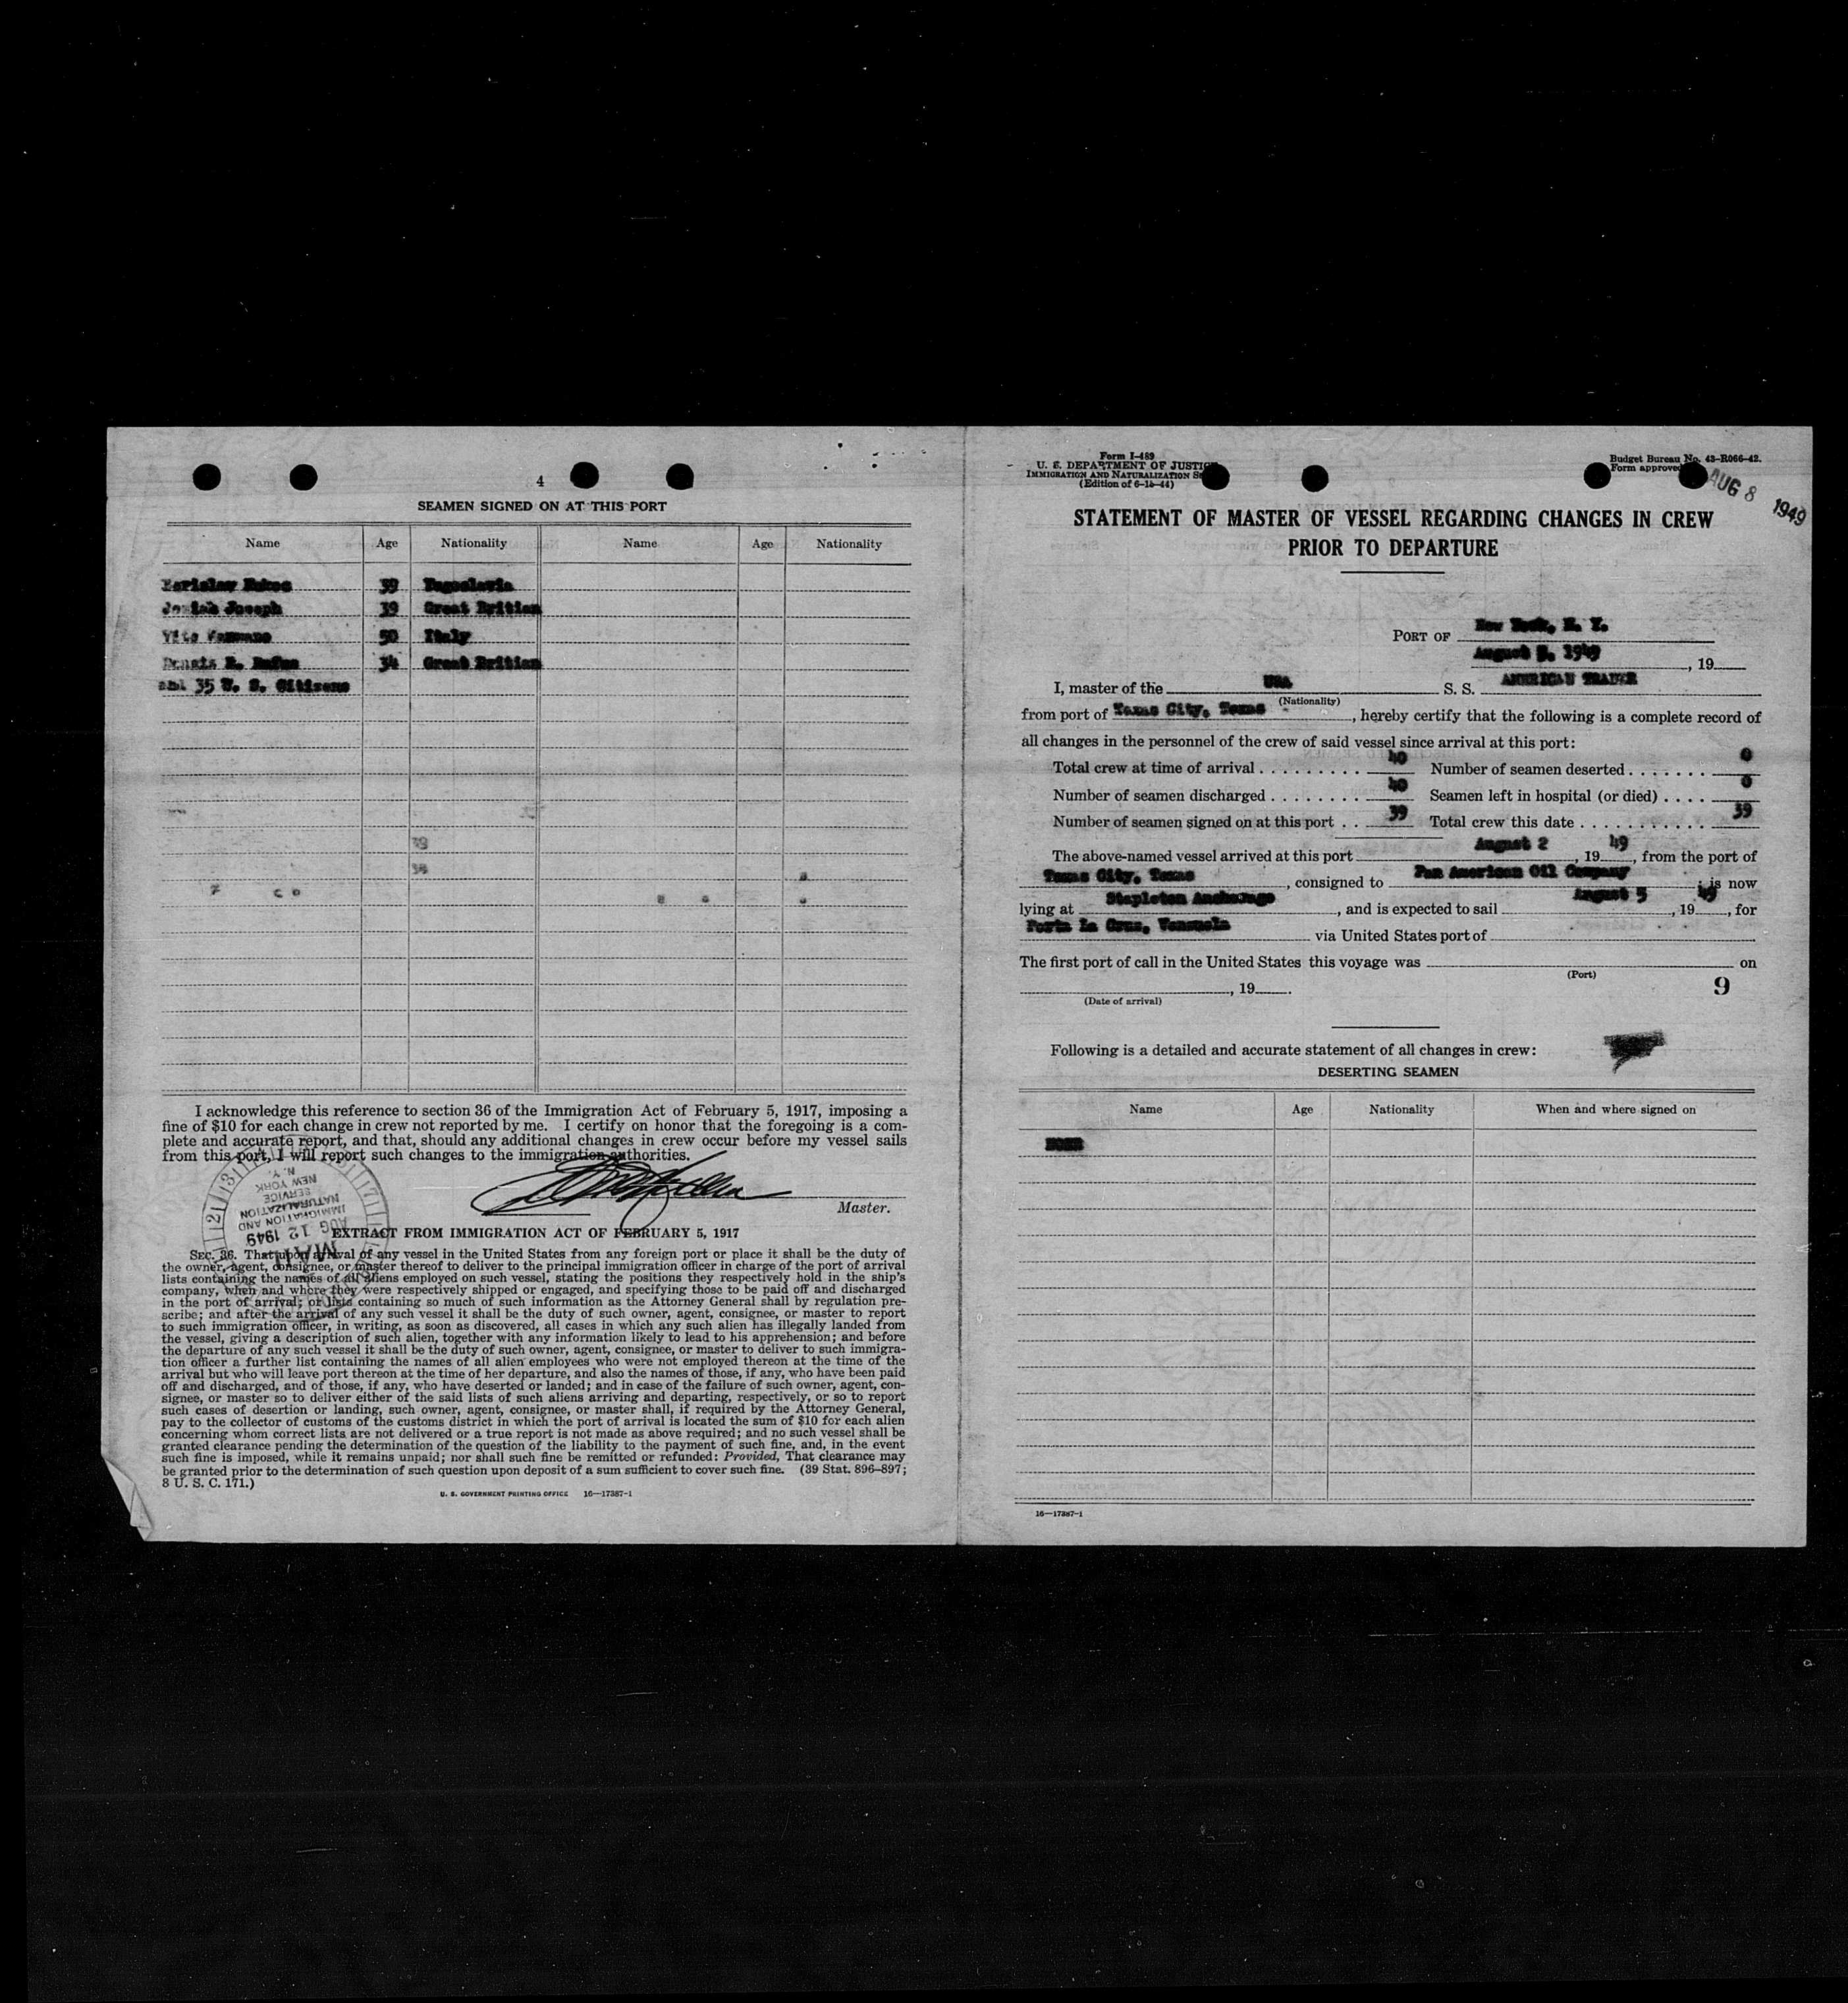 4
SEAMEN SIGNED ON AT THIS PORT
Name Age Nationality Name Age Nationality
39 Yugoslavia
Josiah Joseph 39 Great Britian
Vito 50 Italy
34 Great Britian
and 35 U. S. Citizens
I acknowledge this reference to section 36 of the Immigration Act of February 5, 1917, imposing a
fine of $10 for each change in crew not reported by me. I certify on honor that the foregoing is a com-
plete and accurate report, and that, should any additional changes in crew occur before my vessel sails
from this port, I will report such changes to the immigration authorities.
Master.
IMMIGRATION AND
NATURALIZATION
SERVICE
NEW YORK
N. Y.
AUG 12 1949
MAIL
EXTRACT FROM IMMIGRATION ACT OF FEBRUARY 5, 1917
SEC. 36. That upon arrival of any vessel in the United States from any foreign port or place it shall be the duty of
the owner, agent, consignee, or master thereof to deliver to the principal immigration officer in charge of the port of arrival
lists containing the names of all aliens employed on such vessel, stating the positions they respectively hold in the ship's
company, when and where they were respectively shipped or engaged, and specifying those to be paid off and discharged
in the port of arrival; or lists containing so much of such information as the Attorney General shall by regulation pre-
scribe; and after the arrival of any such vessel it shall be the duty of such owner, agent, consignee, or master to report
to such immigration officer, in writing, as soon as discovered, all cases in which any such alien has illegally landed from
the vessel, giving a description of such alien, together with any information likely to lead to his apprehension; and before
the departure of any such vessel it shall be the duty of such owner, agent, consignee, or master to deliver to such immigra-
tion officer a further list containing the names of all alien employees who were not employed thereon at the time of the
arrival but who will leave port thereon at the time of her departure, and also the names of those, if any, who have been paid
off and discharged, and of those, if any, who have deserted or landed; and in case of the failure of such owner, agent, con-
signee, or master so to deliver either of the said lists of such aliens arriving and departing, respectively, or so to report
such cases of desertion or landing, such owner, agent, consignee, or master shall, if required by the Attorney General,
pay to the collector of customs of the customs district in which the port of arrival is located the sum of $10 for each alien
concerning whom correct lists are not delivered or a true report is not made as above required; and no such vessel shall be
granted clearance pending the determination of the question of the liability to the payment of such fine, and, in the event
such fine is imposed, while it remains unpaid; nor shall such fine be remitted or refunded: Provided, That clearance may
be granted prior to the determination of such question upon deposit of a sum sufficient to cover such fine. (39 Stat. 896–897;
8 U. S. C. 171.)
U. S. GOVERNMENT PRINTING OFFICE 16—17387-1
Form I-489
U. S. DEPARTMENT OF JUSTICE
IMMIGRATION AND NATURALIZATION
(Edition of 6-15-44)
Budget Bureau No. 43-R066-42.
Form approved
AUG 8 1949
STATEMENT OF MASTER OF VESSEL REGARDING CHANGES IN CREW
PRIOR TO DEPARTURE
PORT OF New York, N. Y.
August 5, 1949, 19
I, master of the USA S. S. AMERICAN TRADER
(Nationality)
from port of Texas City, Texas, hereby certify that the following is a complete record of
all changes in the personnel of the crew of said vessel since arrival at this port:
Total crew at time of arrival 40 Number of seamen deserted 0
Number of seamen discharged 40 Seamen left in hospital (or died) 0
Number of seamen signed on at this port 39 Total crew this date 39
The above-named vessel arrived at this port August 2, 1949, from the port of
Texas City, Texas, consigned to Pan American Oil Company; is now
lying at Stapleton Anchorage, and is expected to sail August 5, 1949, for
Porta La Cruz, Venzuela via United States port of
The first port of call in the United States this voyage was on
(Port)
, 19 .
(Date of arrival)
9
Following is a detailed and accurate statement of all changes in crew:
DESERTING SEAMEN
Name Age Nationality When and where signed on
NONE
16—17387-1